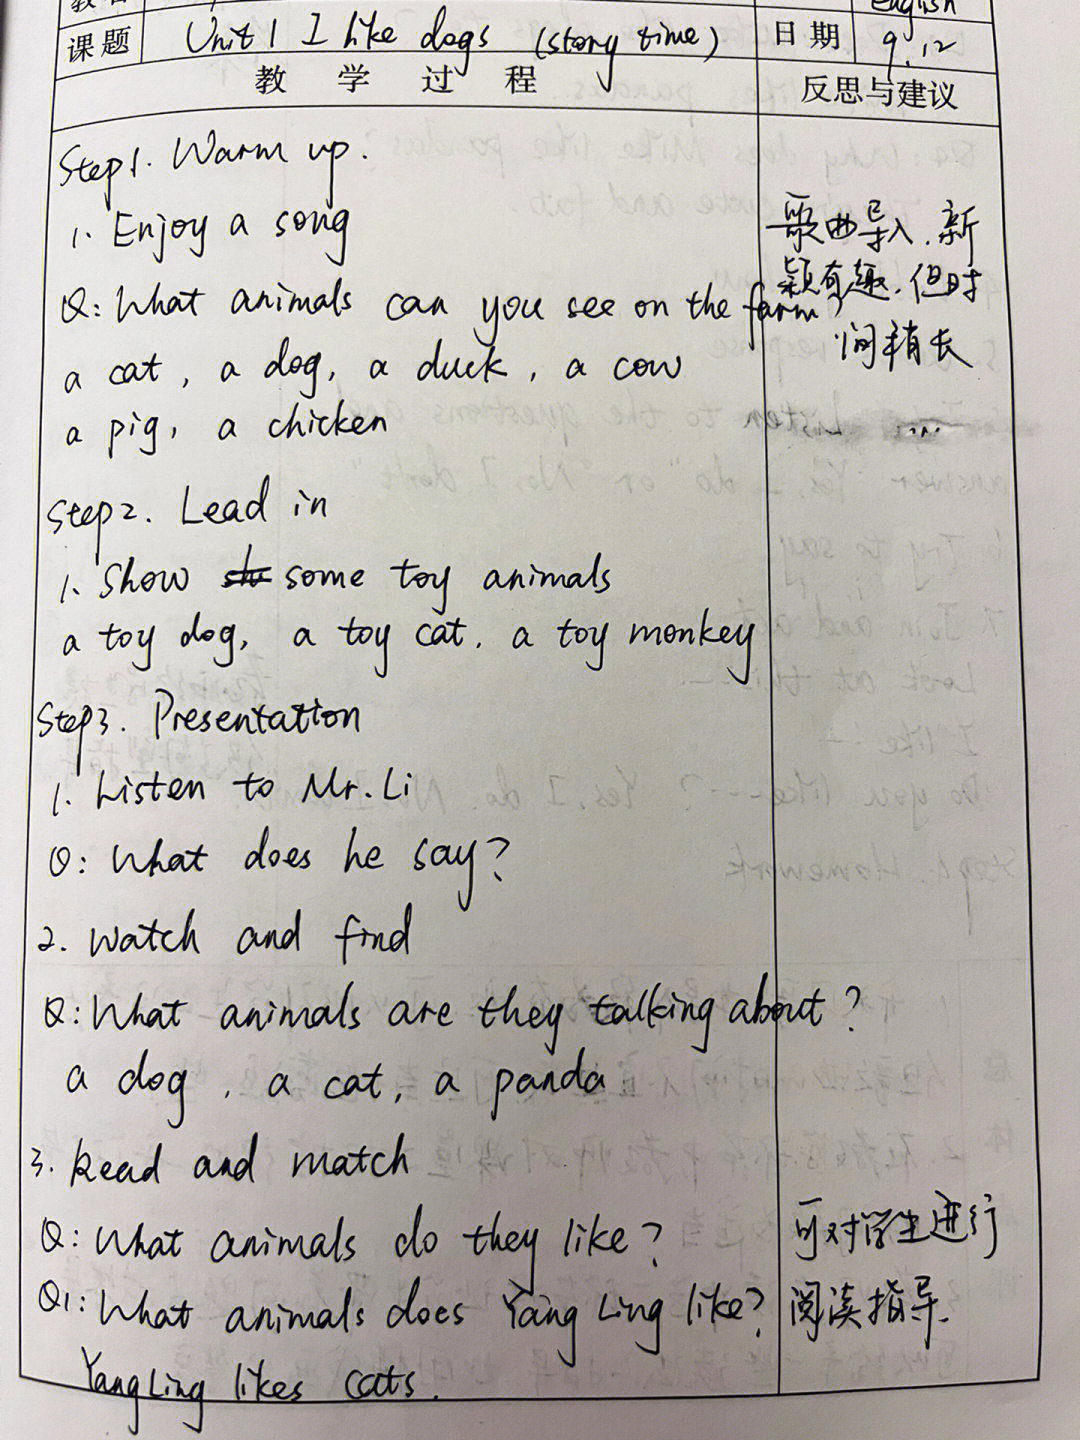 English
课题 Unit 1 I like dogs (story time) 日期 9.12
教学过程 反思与建议
Step1. Warm up.
1. Enjoy a song
Q: What animals can you see on the farm?
a cat, a dog, a duck, a cow
a pig, a chicken
歌曲导入,新
颖有趣,但时
间稍长
Step2. Lead in
1. Show some toy animals
a toy dog, a toy cat, a toy monkey
Step3. Presentation
1. Listen to Mr. Li
Q: What does he say?
2. Watch and find
Q: What animals are they talking about?
a dog, a cat, a panda
3. Read and match
Q: What animals do they like?
Q1: What animals does Yang Ling like?
Yang Ling likes cats.
可对学生进行
阅读指导.